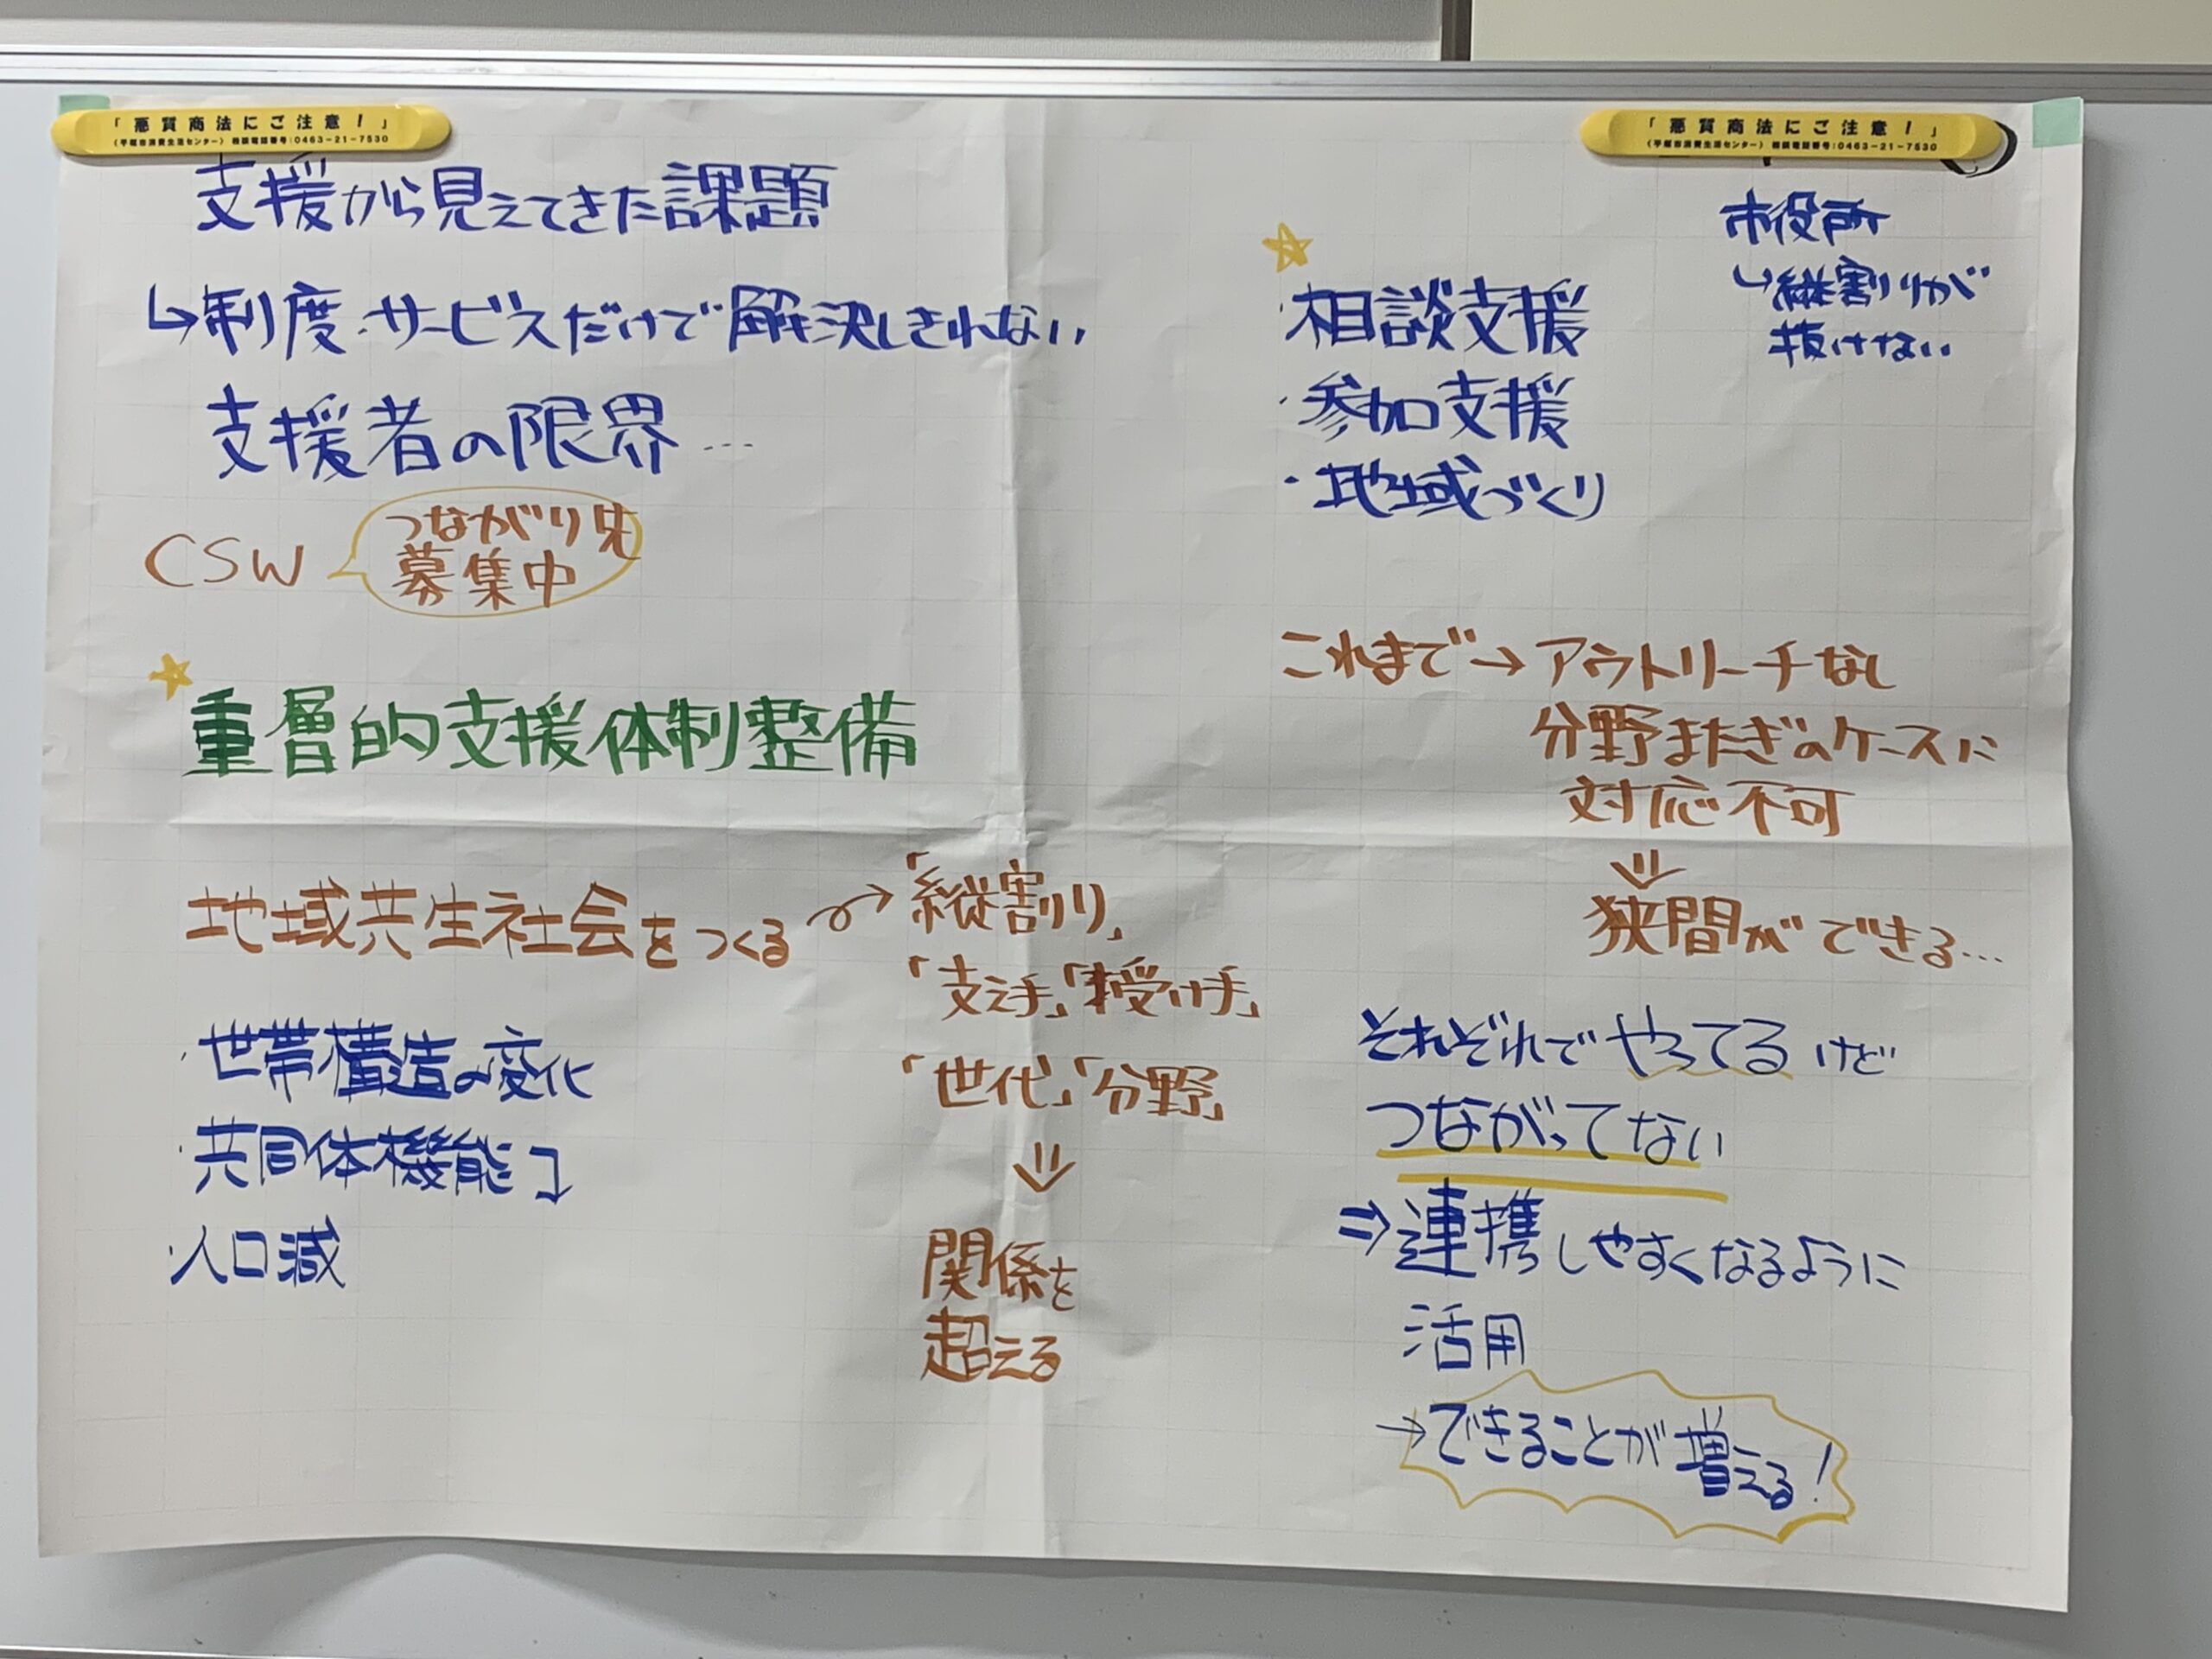 「悪質商法にご注意！」
(平塚市消費生活センター) 相談電話番号:0463-21-7530
支援から見えてきた課題
↳制度・サービスだけで解決しきれない
支援者の限界…
CSW
つながり先
募集中
☆
重層的支援体制整備
地域共生社会をつくる
「縦割り」
「支え手」「受け手」
「世代」「分野」
⇓
関係を
超える
・世帯構造の変化
・共同体機能↴
・人口減
「悪質商法にご注意！」
(平塚市消費生活センター) 相談電話番号:0463-21-7530
市役所
↳縦割りが
抜けない
☆
・相談支援
・参加支援
・地域づくり
これまで→アウトリーチなし
分野またぎのケースに
対応不可
⇓
狭間ができる…
それぞれでやってるけど
つながってない
⇒連携しやすくなるように
活用
→できることが増える！